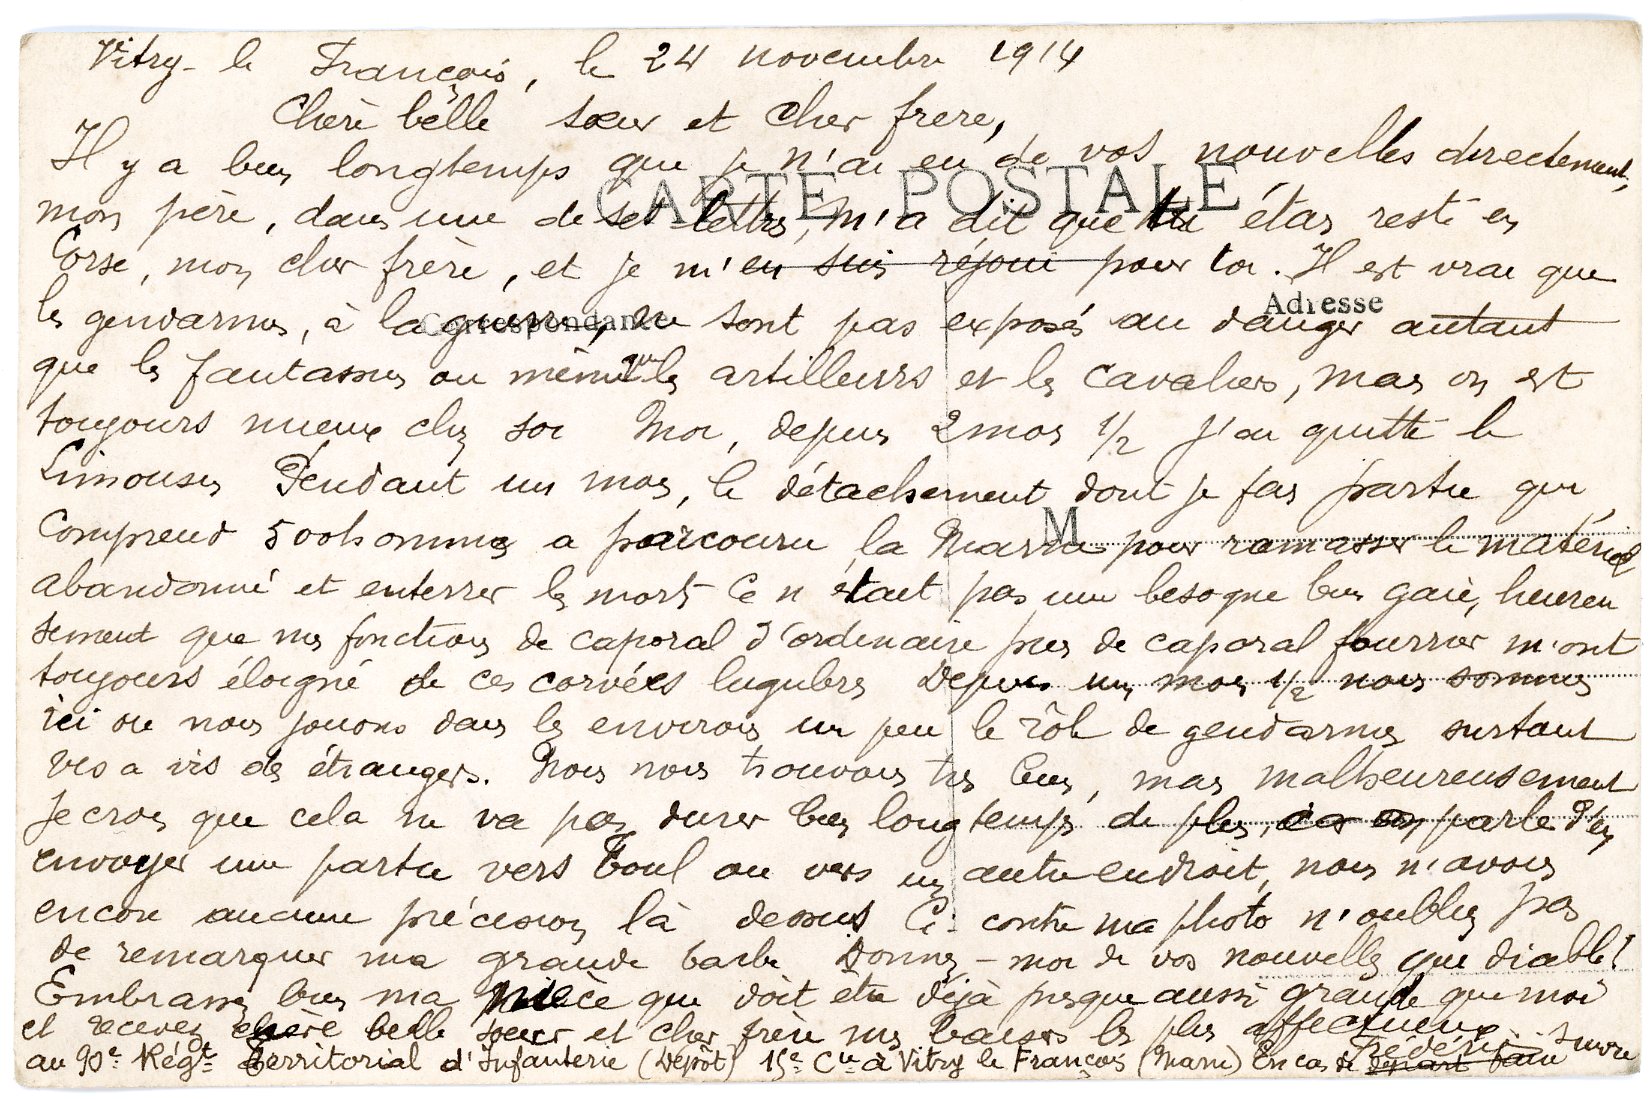 Vitry-le François, le 24 novembre 1914
Chère belle sœur et cher frère,
Il y a bien longtemps que je n'ai eu de vos nouvelles directement,
CARTE POSTALE
mon père, dans une de ses lettres, m'a dit que tu étais resté en
Corse, mon cher frère, et je m'en suis réjoui pour toi. Il est vrai que
Correspondance
Adresse
les gendarmes, à la guerre, ne sont pas exposés au danger autant
que les fantassins ou même que les artilleurs et les cavaliers, mais on est
toujours mieux chez soi Moi, depuis 2 mois 1/2 j'ai quitté le
Limousin Pendant un mois, le détachement dont je fais partie qui
M
comprend 500 hommes a parcouru la Marne pour ramasser le matériel
abandonné et enterrer les morts Ce n'était pas une besogne bien gaie, heureu
sement que mes fonctions de caporal d'ordinaire puis de caporal fourrier m'ont
toujours éloigné de ces corvées lugubres Depuis un mois 1/2 nous sommes
ici où nous jouons dans les environs un peu le rôle de gendarmes surtout
vis a vis des étrangers. Nous nous trouvons très bien, mais malheureusement
je crois que cela ne va pas durer bien longtemps de plus, car on parle d'en
envoyer une partie vers Toul ou vers un autre endroit, nous n'avons
encore aucune précision là dessus Ci-contre ma photo n'oubliez pas
de remarquer ma grande barbe Donnez-moi de vos nouvelles que diable!
Embrassez bien ma nièce qui doit être déjà presque aussi grande que moi
et recevez chère belle sœur et cher frère mes baisers les plus affectueux
Frédéric
au 90e Régt Territorial d'Infanterie (Dépôt) 15e Cie à Vitry le François (Marne) En cas de départ faire suivre